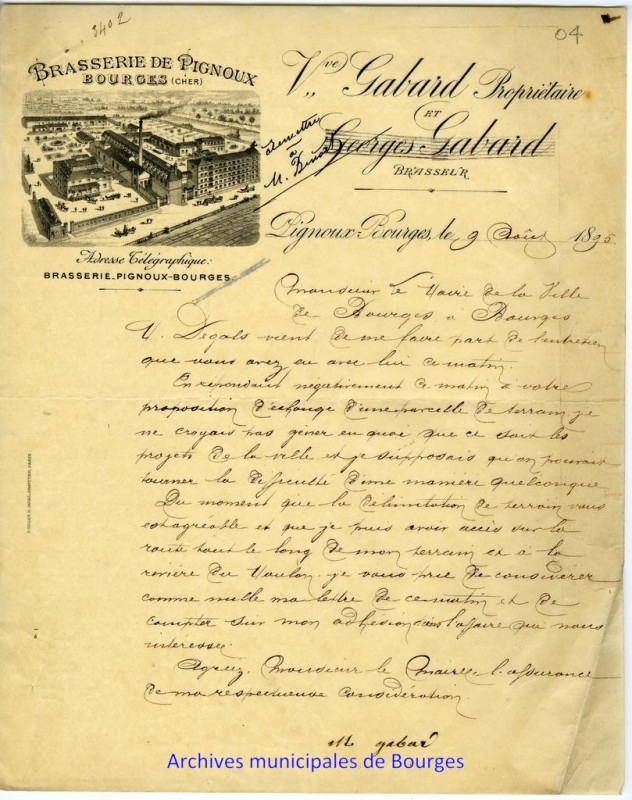 3402
04
BRASSERIE DE PIGNOUX
BOURGES (CHER)
Vve Gabard Propriétaire
ET
Georges Gabard
BRASSEUR
remettre
à
M.
Adresse Télégraphique:
BRASSERIE-PIGNOUX-BOURGES
Pignoux-Bourges, le 9 Août 1895
Monsieur le Maire de la Ville
de Bourges à Bourges
M. Degals vient de me faire part de l'entretien
que vous avez eu avec lui ce matin.
En répondant négativement ce matin à votre
proposition d'échange d'une parcelle de terrain je
ne croyais pas gêner en quoi que ce soit les
projets de la ville et je supposais qu'on pouvait
tourner la difficulté d'une manière quelconque
Du moment que la délimitation de terrain vous
est agréable et que je puis avoir accès sur la
route tout le long de mon terrain et à la
rivière du Moulon je vous prie de considérer
comme nulle ma lettre de ce matin et de
compter sur mon adhésion dans l'affaire qui nous
intéresse.
Agréez, Monsieur le Maire, l'assurance
de ma respectueuse considération.
Gabard
Archives municipales de Bourges